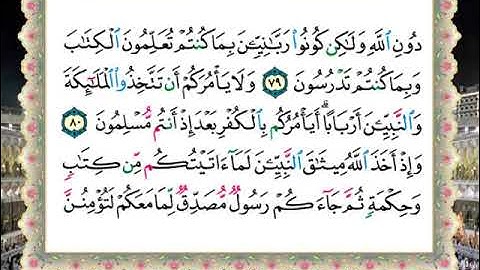 دُونِ ٱللَّهِ وَلَٰكِن كُونُوا۟ رَبَّٰنِيِّـۧنَ بِمَا كُنتُمْ تُعَلِّمُونَ ٱلْكِتَٰبَ
وَبِمَا كُنتُمْ تَدْرُسُونَ ٧٩ وَلَا يَأْمُرَكُمْ أَن تَتَّخِذُوا۟ ٱلْمَلَٰٓئِكَةَ
وَٱلنَّبِيِّـۧنَ أَرْبَابًا ۗ أَيَأْمُرُكُم بِٱلْكُفْرِ بَعْدَ إِذْ أَنتُم مُّسْلِمُونَ ٨٠
وَإِذْ أَخَذَ ٱللَّهُ مِيثَٰقَ ٱلنَّبِيِّـۧنَ لَمَآ ءَاتَيْتُكُم مِّن كِتَٰبٍ
وَحِكْمَةٍ ثُمَّ جَآءَكُمْ رَسُولٌ مُّصَدِّقٌ لِّمَا مَعَكُمْ لَتُؤْمِنُنَّ